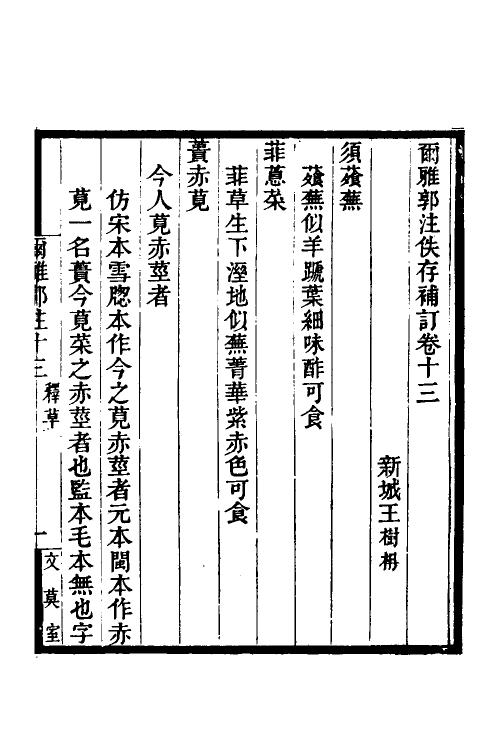 爾雅郭注佚存補訂卷十三
新城王樹枏
須薞蕪
薞蕪似羊蹏葉細味酢可食
菲蒠菜
菲草生下溼地似蕪菁華紫赤色可食
蕢赤莧
今人莧赤莖者
仿宋本雪牕本作今之莧赤莖者元本閩本作赤
莧一名蕢今莧菜之赤莖者也監本毛本無也字
爾雅郭注十三 釋草 一 文莫室